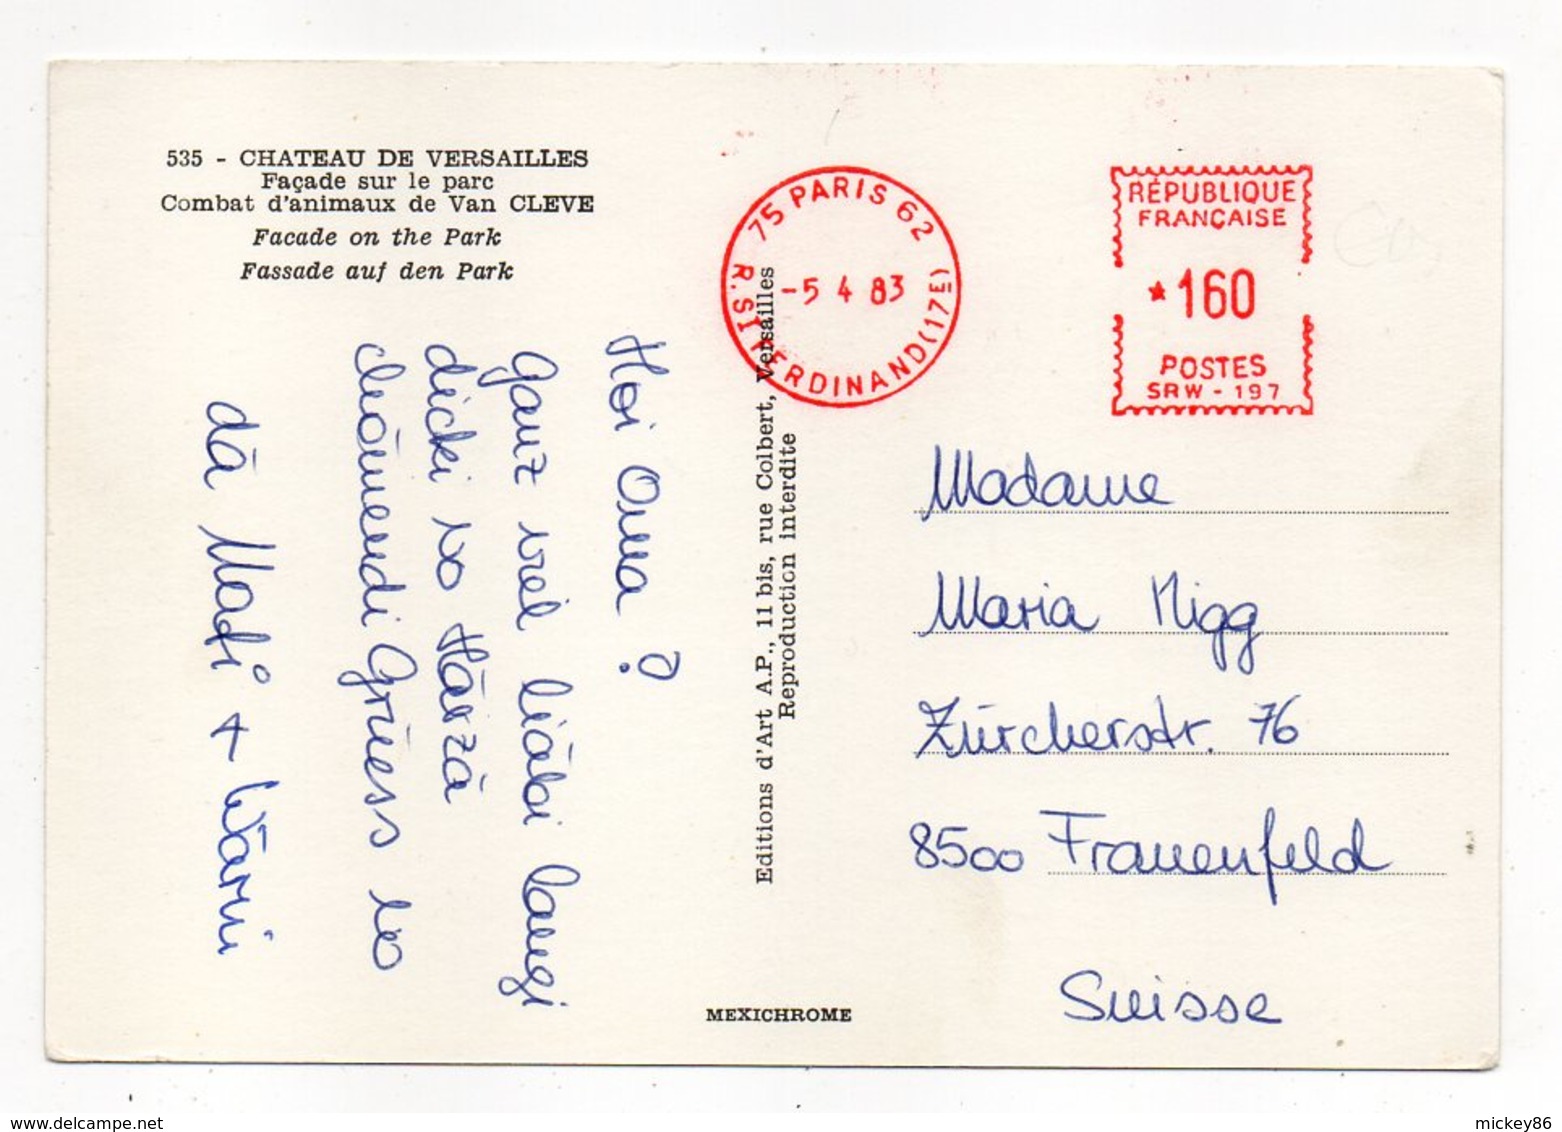 535 - CHATEAU DE VERSAILLES
Façade sur le parc
Combat d'animaux de Van CLEVE
Facade on the Park
Fassade auf den Park
Hoi Oma?
Ganz viel liäbi langi
dicki vo Härzä
chömendi Grüess vo
dä Madi + Wärni
Editions d'Art A.P., 11 bis, rue Colbert, Versailles
Reproduction interdite
MEXICHROME
75 PARIS 62
R. ST FERDINAND (17E)
-5 4 83
RÉPUBLIQUE
FRANÇAISE
*160
POSTES
SRW - 197
Madame
Maria Nigg
Zürcherstr. 76
8500 Frauenfeld
Suisse
mickey86